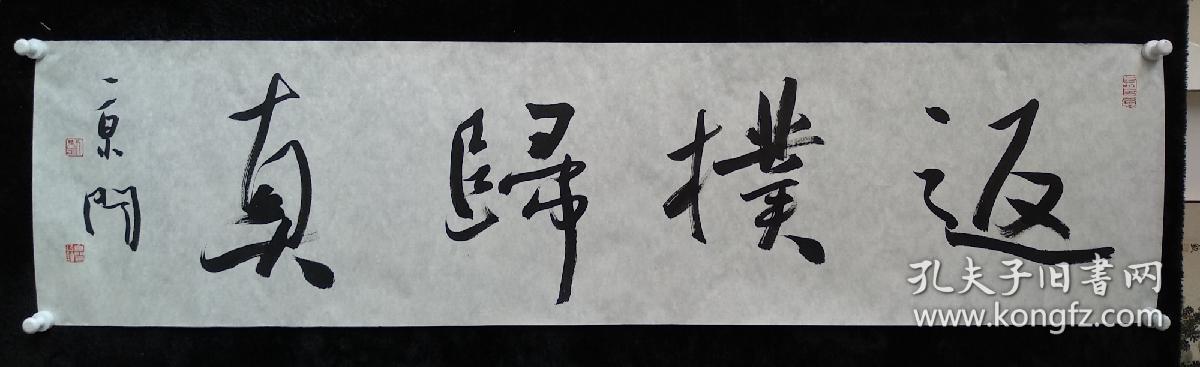 返撲歸真
京門
孔夫子旧书网
www.kongfz.com